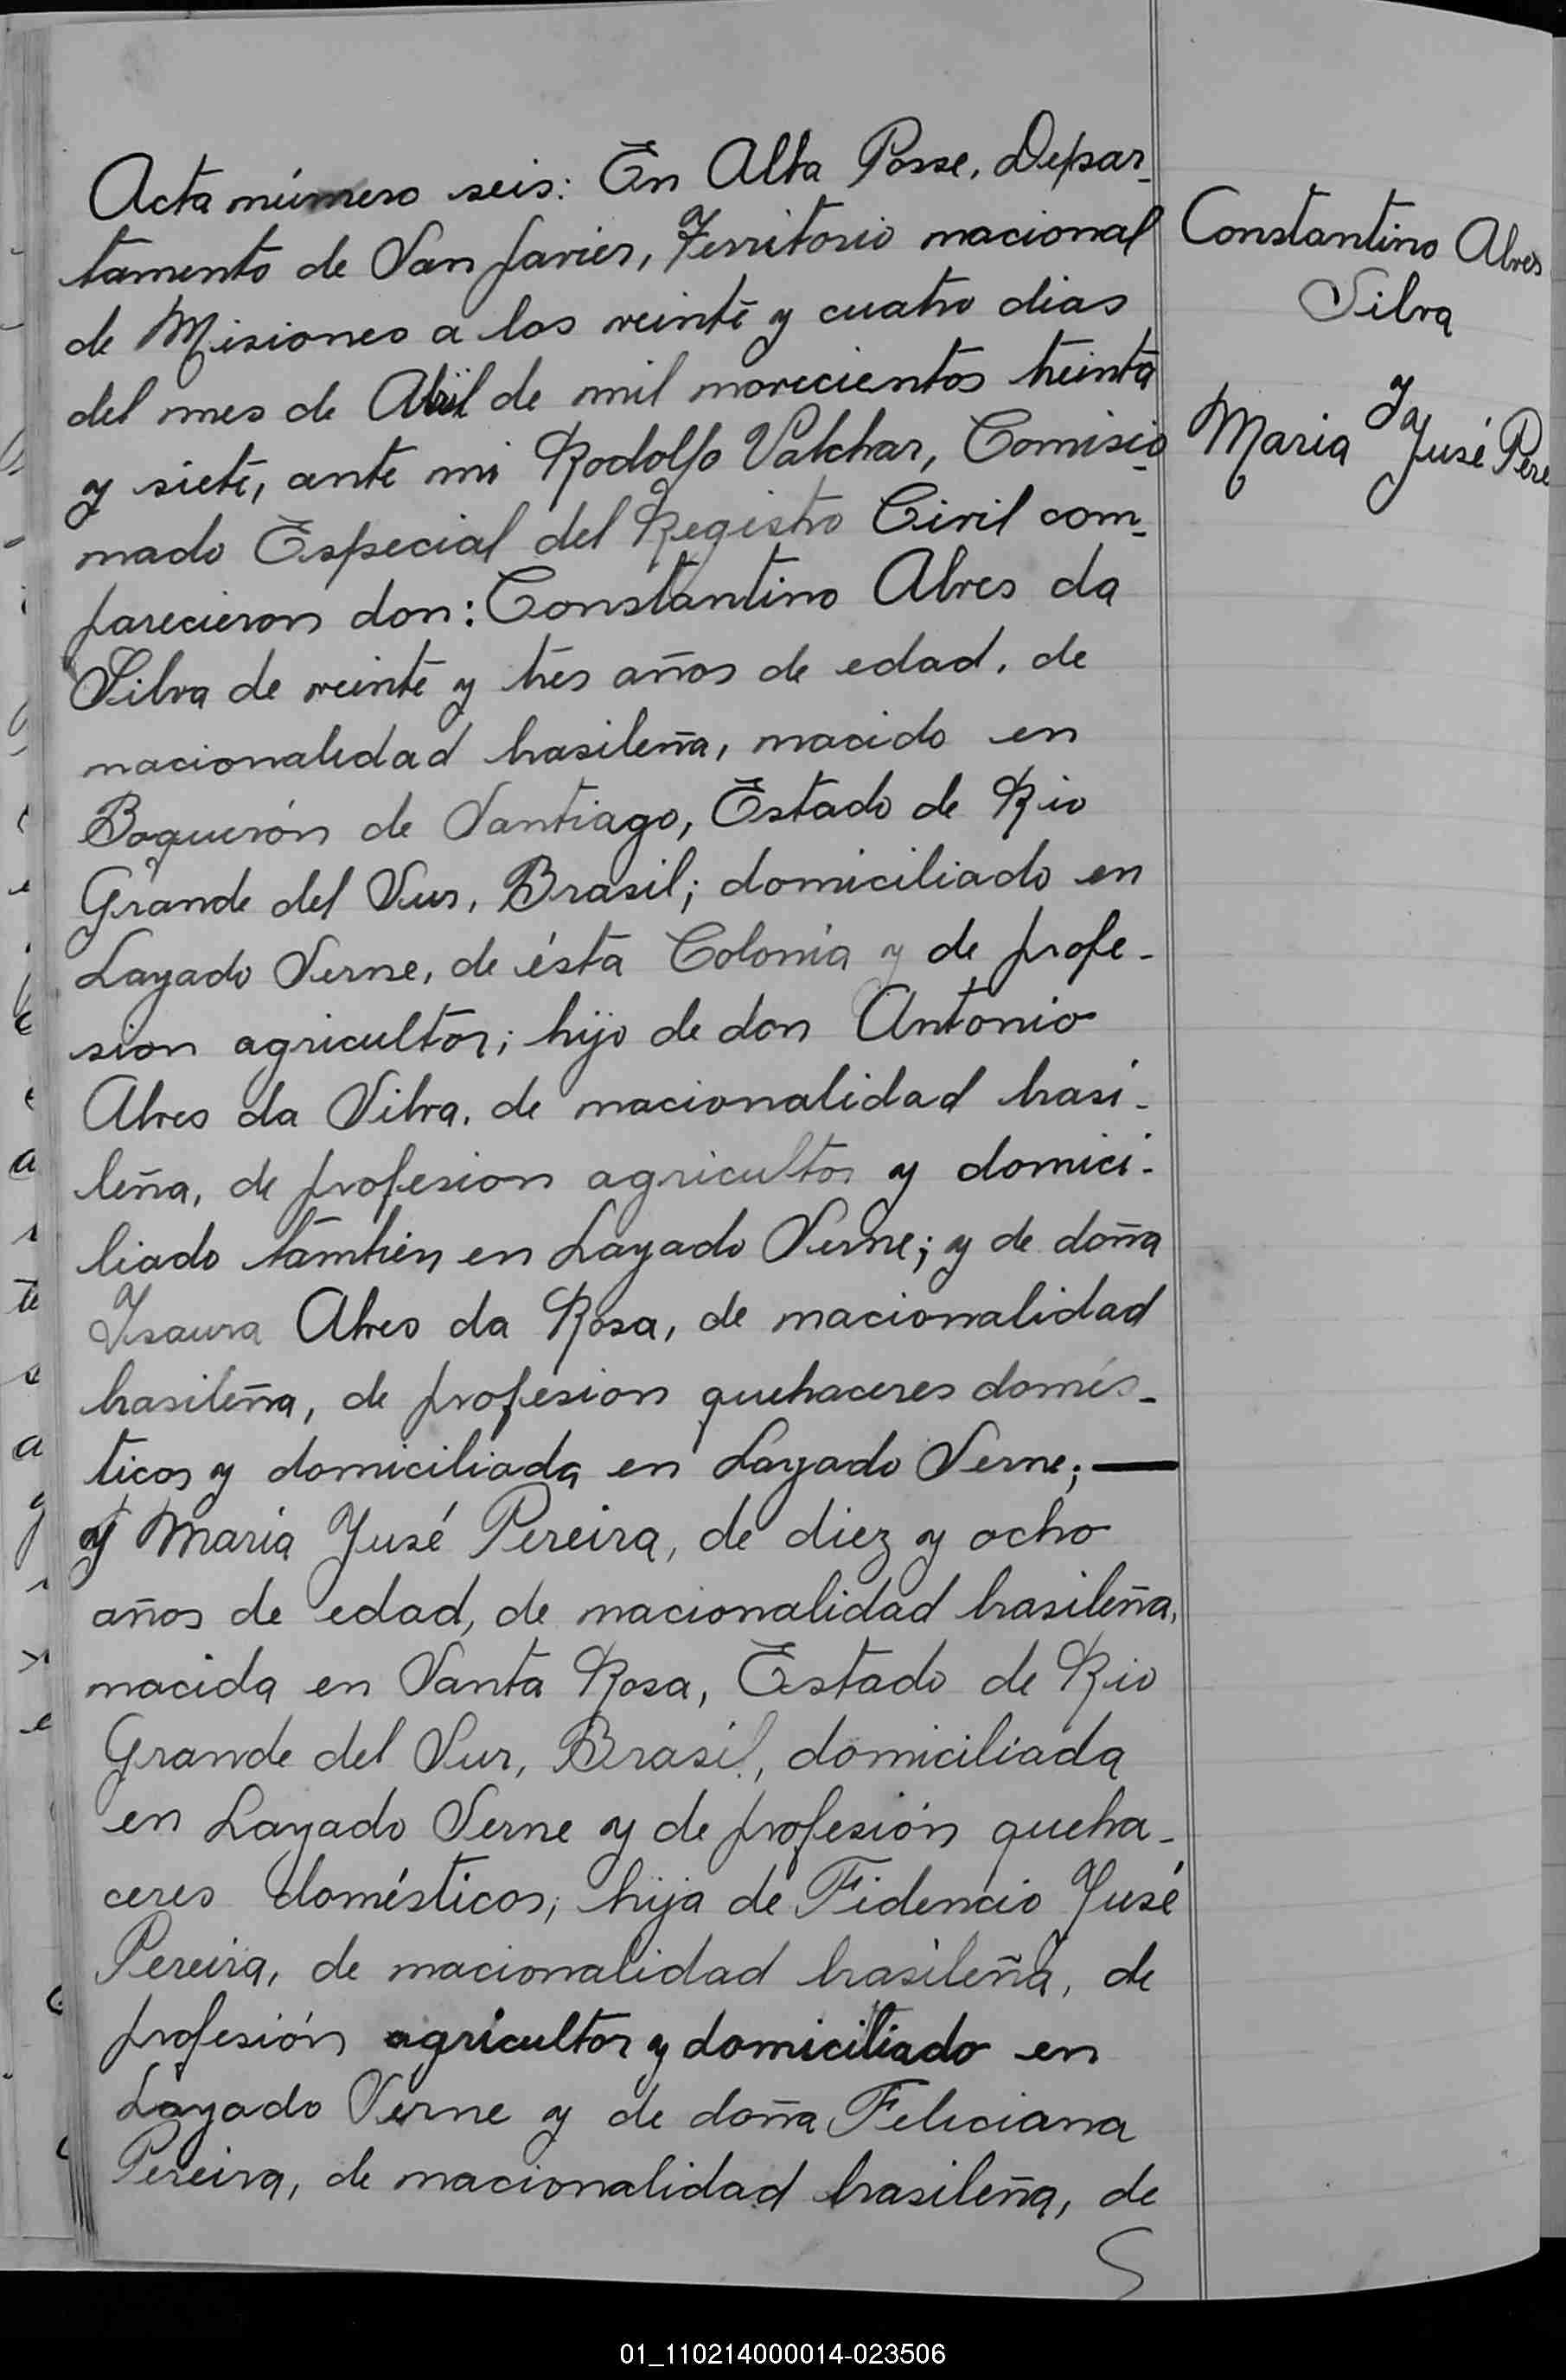 Acta número seis: En Alba Posse, Depar-
tamento de San Javier, Territorio nacional
de Misiones a los veinte y cuatro dias
del mes de Abril de mil novecientos treinta
y siete, ante mi Rodolfo Valchar, Comisio-
nado Especial del Registro Civil com-
parecieron don: Constantino Alves da
Silva de veinte y tres años de edad, de
nacionalidad brasileña, nacido en
Boquerón de Santiago, Estado de Rio
Grande del Sur, Brasil; domiciliado en
Layado Serne, de ésta Colonia y de profe-
sion agricultor; hijo de don Antonio
Alves da Silva, de nacionalidad brasi-
leña, de profesion agricultor y domici-
liado tambien en Layado Serne; y de doña
Isaura Alves da Rosa, de nacionalidad
brasileña, de profesion quehaceres domés-
ticos y domiciliada en Layado Serne; —
y Maria Jusé Pereira, de diez y ocho
años de edad, de nacionalidad brasileña,
nacida en Santa Rosa, Estado de Rio
Grande del Sur, Brasil, domiciliada
en Layado Serne y de profesión queha-
ceres domésticos; hija de Fidencio Jusé
Pereira, de nacionalidad brasileña, de
profesión agricultor y domiciliado en
Layado Serne y de doña Feliciana
Pereira, de nacionalidad brasileña, de
Constantino Alves
Silva
y
Maria Jusé Pere
01_110214000014-023506